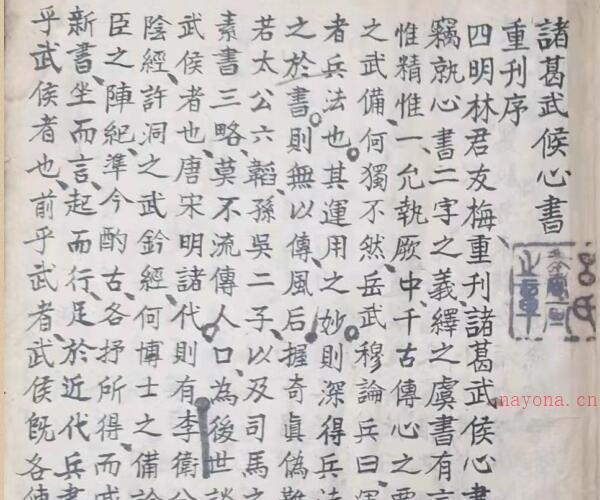 諸葛武侯心書
重刊序
四明林君友梅重刊諸葛武侯心書
竊就心書二字之義繹之虞書有言
惟精惟一允執厥中千古傳心之要
之武備何獨不然岳武穆論兵曰運
者兵法也其運用之妙則深得兵法
之於書則無以傳風后握奇真偽難
若太公六韜孫吳二子以及司馬之
素書三略莫不流傳人口為後世談
武侯者也唐宋明諸代則有李衛公
陰經許洞之武鈐經何博士之備論
臣之陣紀準今酌古各抒所得而成
新書坐而言起而行足於近代兵書
乎武侯者也前乎武者武侯既各傳
nayona.cn